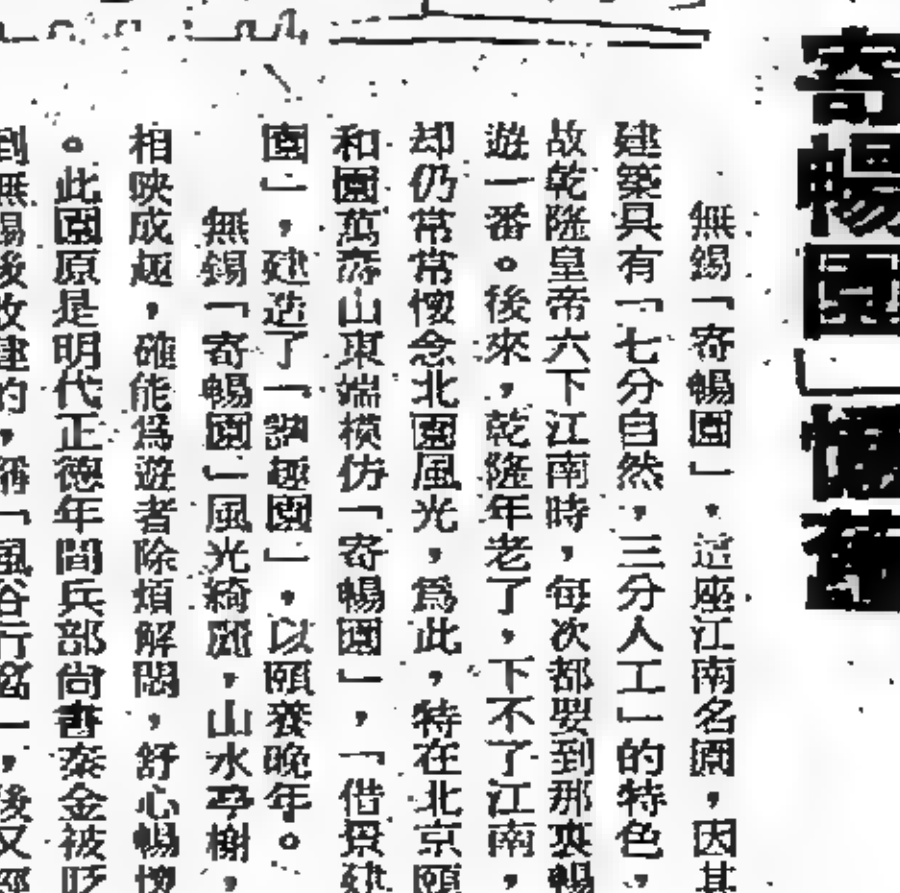 寄暢園」懷舊
無錫「寄暢園」，這座江南名園，因其
建築具有「七分自然，三分人工」的特色，
故乾隆皇帝六下江南時，每次都要到那裏暢
遊一番。後來，乾隆年老了，下不了江南，
却仍常常懷念北園風光，爲此，特在北京頤
和園萬壽山東端模仿「寄暢園」，「借景建
園」，建造了「諧趣園」，以頤養晚年。
無錫「寄暢園」風光綺麗，山水亭榭，
相映成趣，確能爲遊者除煩解悶，舒心暢懷
。此園原是明代正德年間兵部尚書秦金被貶
到無錫後改建的，稱「風谷行窩」，後又經